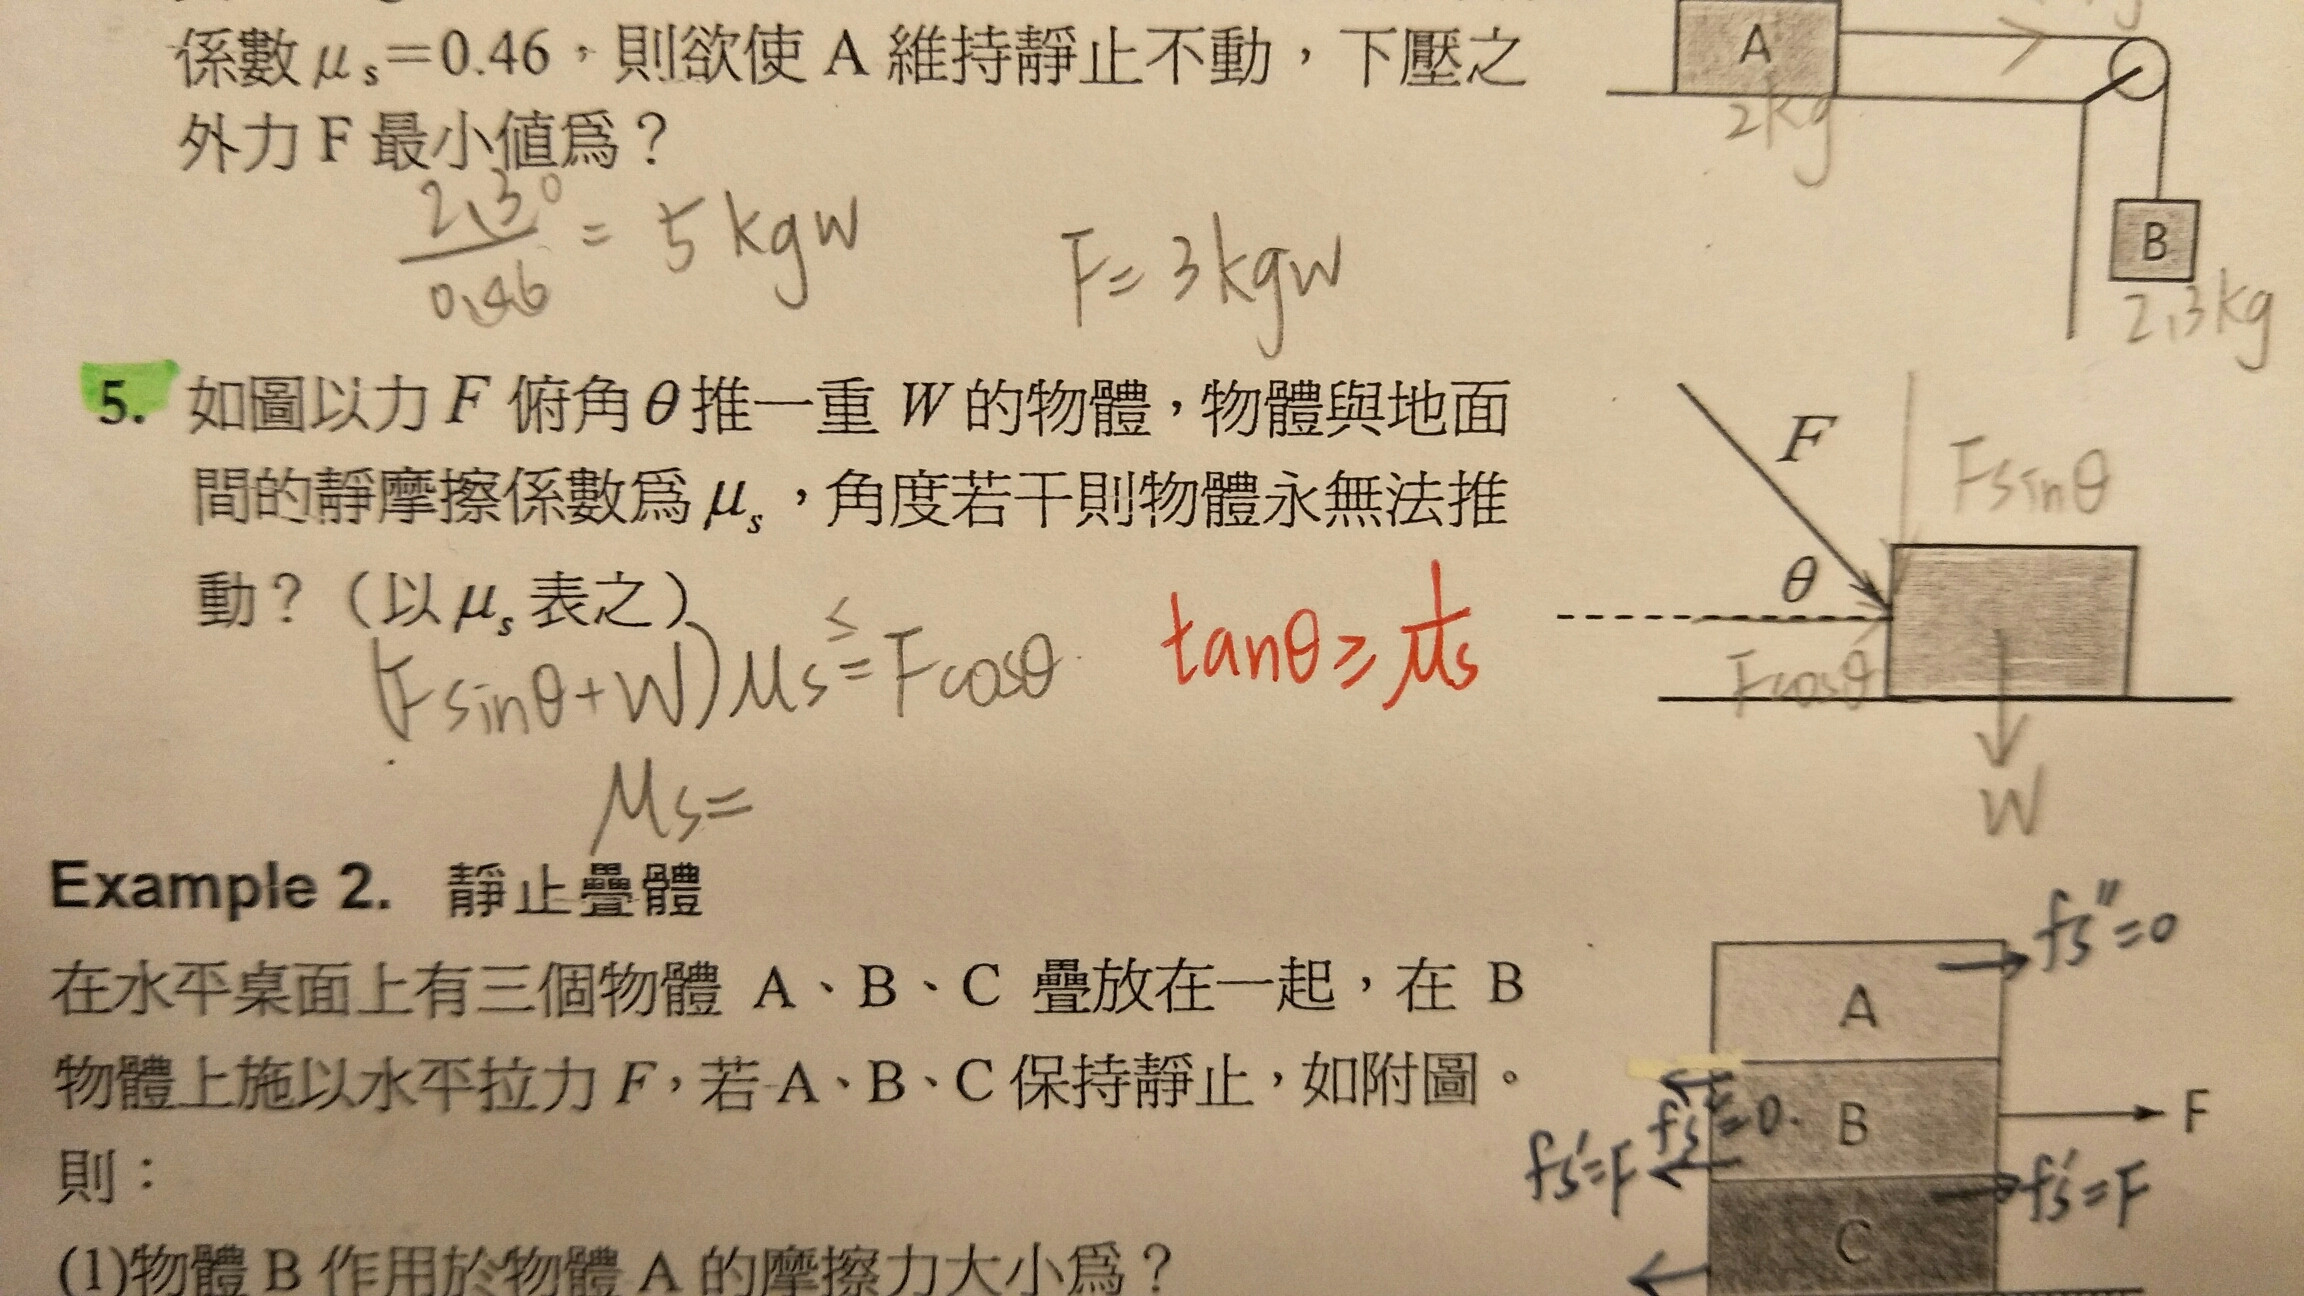 係數 μs=0.46,則欲使 A 維持靜止不動,下壓之
外力 F 最小值爲?
A
2kg
B
2.3kg
2.30
0.46
= 5 kgw
F= 3kgw
5. 如圖以力 F 俯角θ推一重 W 的物體,物體與地面
間的靜摩擦係數爲 μs,角度若干則物體永無法推
動?(以 μs 表之)
(Fsinθ+W)μs = Fcosθ
≤
tanθ≥ 1/μs
μs=
F
Fsinθ
θ
Fcosθ
W
Example 2. 靜止疊體
在水平桌面上有三個物體 A、B、C 疊放在一起,在 B
物體上施以水平拉力 F,若 A、B、C 保持靜止,如附圖。
則:
(1)物體 B 作用於物體 A 的摩擦力大小爲?
fs''=0
A
fs''=0.
B
F
fs'=F
fs'=F
C